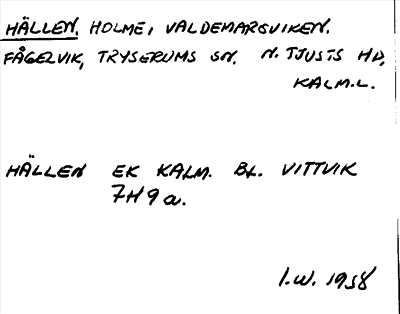 HÄLLEN, HOLME, VALDEMARSVIKEN.
FÅGELVIK, TRYSERUMS SN. N. TJUSTS HD,
KALM.L.
HÄLLEN EK KALM. BL. VITTVIK
7H9a.
I.W. 1958